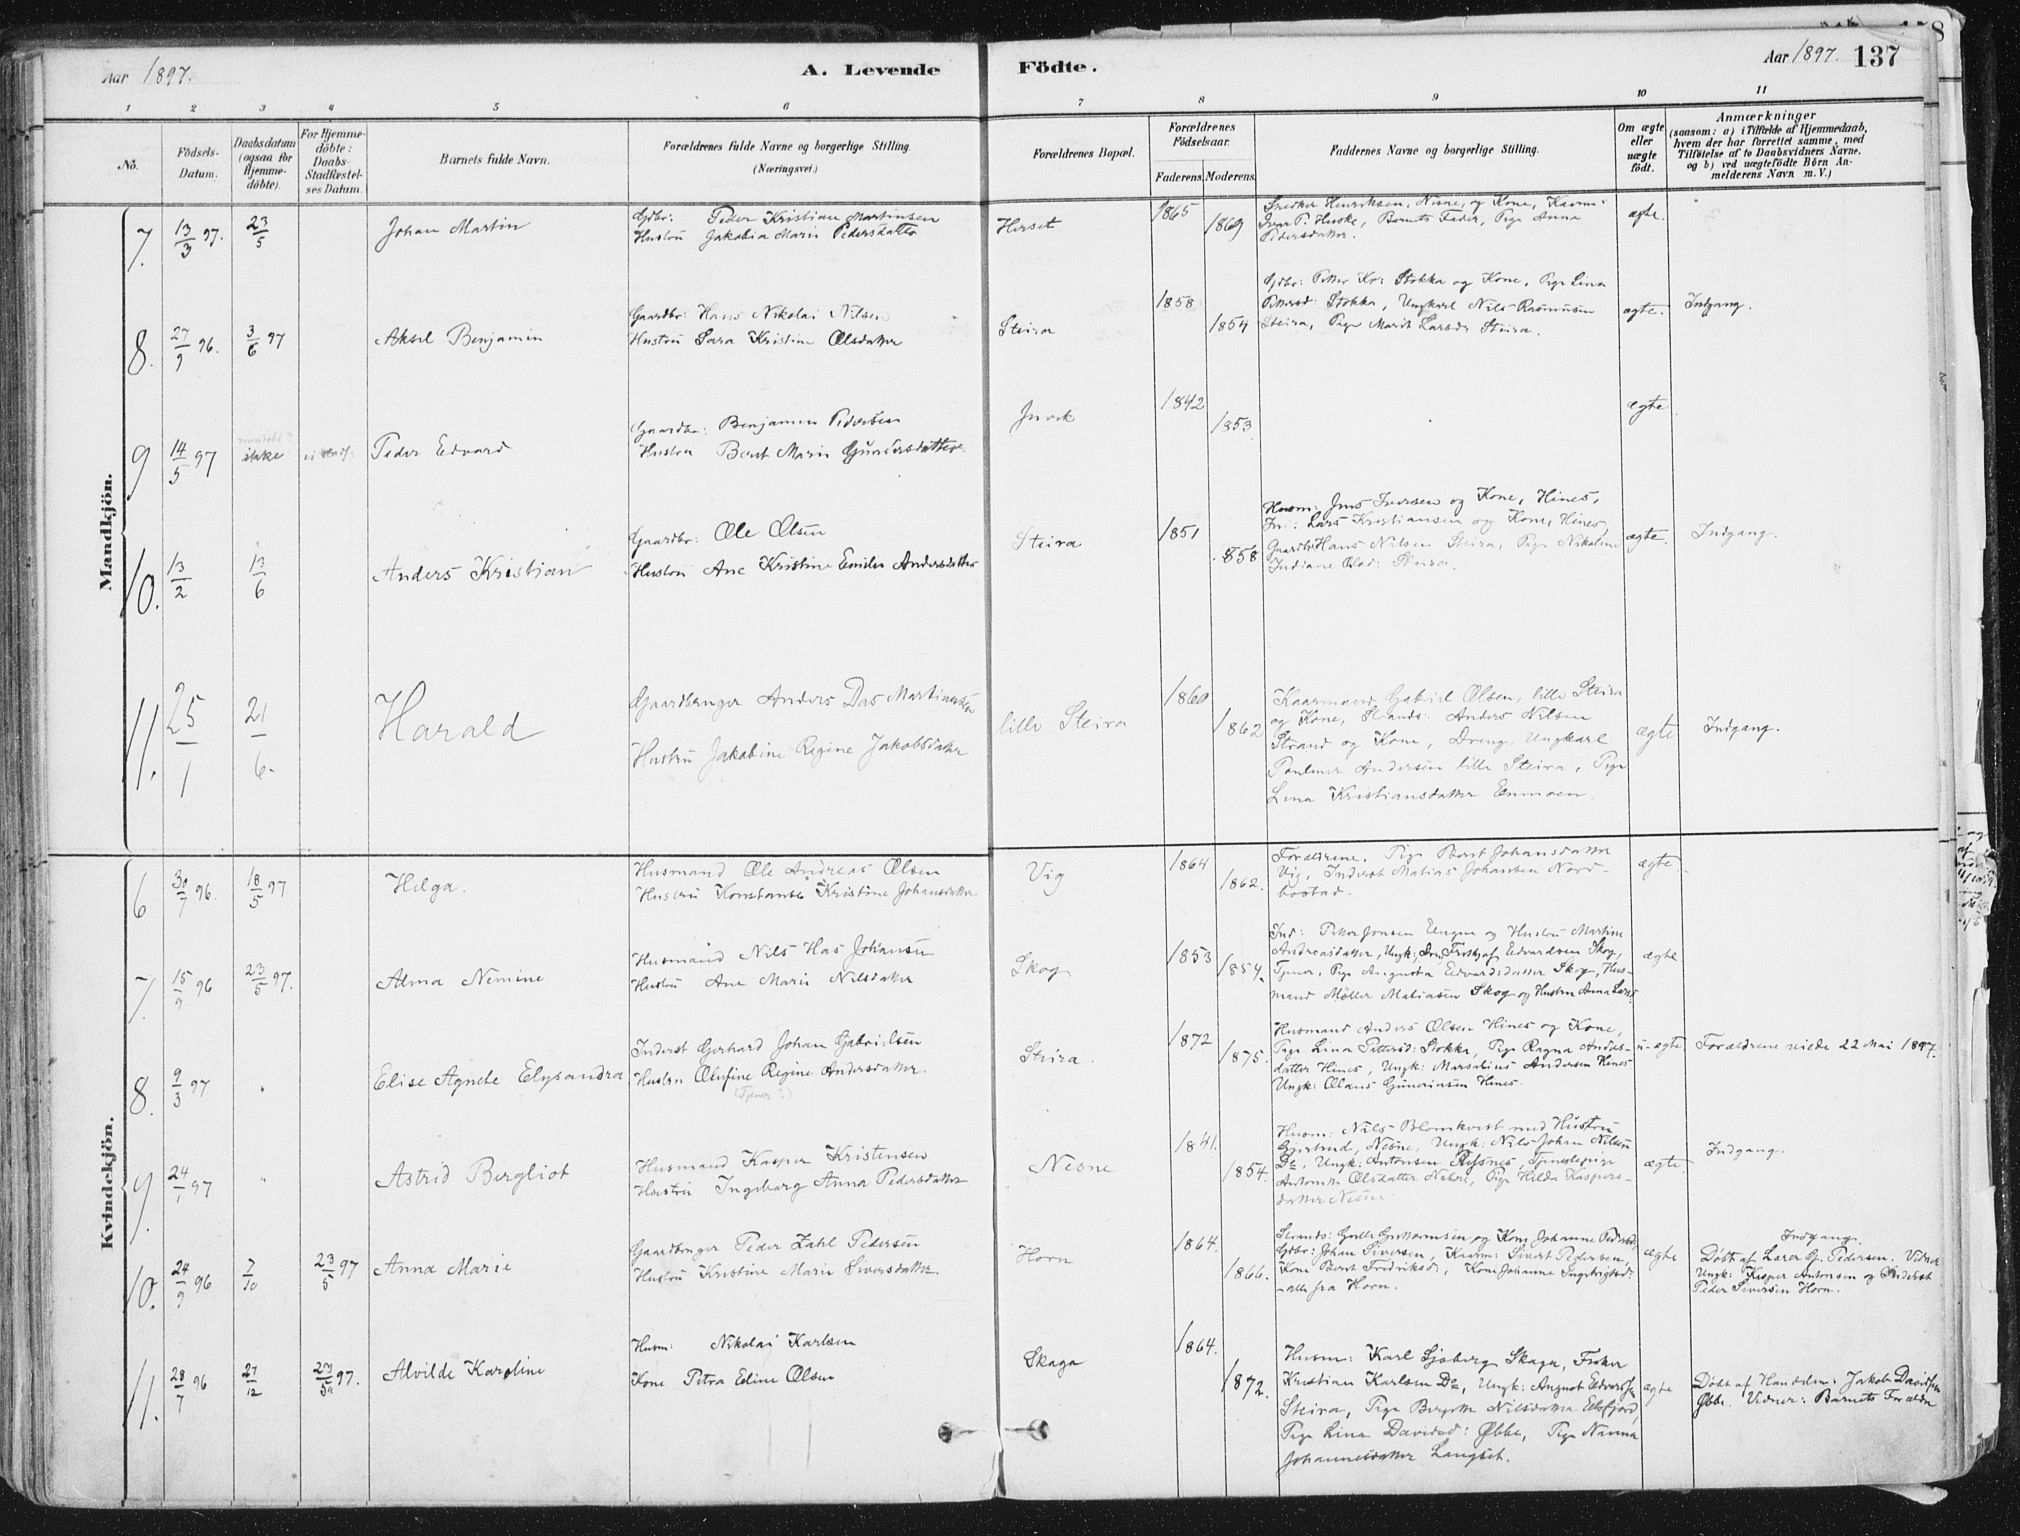 Aar 1897.
A. Levende Födte.
Aar 1897. 137
1 2 3 4 5 6 7 8 9 10 11
No.
Födsels-Datum.
Daabsdatum (ogsaa för Hjemmedöbte).
For Hjemmedöbte: Daabs-Stadfæstelses Datum.
Barnets fulde Navn.
Forældrenes fulde Navne og borgerlige Stilling.
(Næringsvei.)
Forældrenes Bopæl.
Forældrenes Födselsaar.
Faderens. Moderens.
Faddernes Navne og borgerlige Stilling.
Om ægte eller uægte födt.
Anmærkninger
(saasom: a) i Tilfælde af Hjemmedaab, hvem der har forrettet samme, med Tilföielse af to Daabsvidners Navne, og b) ved uægtefödte Börn Anmelderens Navn m. V.)
Mandkjön.
7. 13/3 97. 23/5 Johan Martin
Gdbr: Peder Kristian Martinsen
Hustru Jakobia Marie Pedersdatter
Herset 1865 1869
Henriksen, Nesne, og Kone,
Iver P. Huske, Barnets Fader, Pige Anna
Pedersdatter.
ægte.
8. 27/9 96. 3/6 97 Aksel Benjamin
Gaardbr: Hans Nikolai Nilsen
Hustru Sara Kristine Olsdatter
Steira 1858 1854
Gdbr: Petter Kr: Stokka og Kone, Pige Lina
Pettersd: Stokka, Ungkarl Nils Rasmusen
Steira, Pige Marit Larsdr Steira.
ægte. Indgang.
9 14/5 97 ikke Peder Edvard
Gaardbr: Benjamin Pedersen
Hustru Berit Marie
1842 1853 ægte
10. 13/2 13/6 Anders Kristian
Gaardbr: Ole Olsen
Hustru Ane Kristine Emilie Andersdatter
Steira 1851 1858
Husm: Jens Iversen og Kone, Hines,
Lars Kristiansen og Kone, Hines,
Gaardbr Hans Nilsen Steira, Pige Nikoline
Indiane Olsd: Steira.
ægte. Indgang.
11. 25/1 21/6. Harald
Gaardbruger Anders Das Martinussen
Hustru Jakobine Regine Jakobsdatter
lille Steira 1860 1862
Kaarmand Gabriel Olsen, lille Steira
og Kone, Strands: Anders Nilsen
Strand og Kone, Dreng. Ungkarl
Andersen lille Steira, Pige
Lina Kristiansdatter Enmoen.
ægte Indgang.
Kvindekjön.
6 30/7 96. 18/5 97 Helga.
Husmand Ole Andreas Olsen
Hustru Konstanse Kristine Johansdatter
Vig 1864 1862.
Forældrene. Pige Berit Johansdatter
Vig, Inderst Matias Johansen Nord-
bostad.
ægte.
7. 15/9 96 23/5 97. Alma Nemine
Husmand Nils Has Johansen
Hustru Ane Marie Nilsdatter
Skog 1853 1854.
Ind: Petter Jonsen og Hustru Martine
Andreasdatter, Ungk: Fritjof Edvardsen Skog,
Tjener, Pige Augusta Edvardsdatter Skog, Hus-
mand Møller Matiasen Skog og Hustru Anna Larsd
ægte
8. 9/3 97 Elise Agnete Elysandra
Inderst Gerhard Johan Gabrielsen
Hustru Olufine Regine Andersdatter.
Steira. 1872 1875.
Husmand Anders Olsen Hines og Kone,
Pige Lina Pettersd: Stokka, Pige Ragna Anders-
datter Hines, Ungk: Marselius Andersen Hines
Ungk: Olaus Hines.
u-ægte Forældrene viede 22 Mai 1897.
9. 24/1 97 Astrid Bergliot
Husmand Kasper Kristensen
Hustru Ingeborg Anna Pedersdatter
Nesne 1841. 1854.
Husm: Nils Blomkvist med Hustru
Gjertrud, Nesne, Ungk: Nils Johan Nilsen
Do, Ungk: Antonsen Tjenestepige
Olsdatter Pige Hilda Kaspers-
datter Nesne
ægte. Indgang.
10. 24/9 96 7/10 23/5 97 Anna Marie
Gaardbruger Peder Zahl Pedersen
Hustru Kristine Marie Siversdatter.
Horn 1864. 1866.
Strands: og Kone Johanne Pedersd
Gdbr: Johan Siversen, Kaarm: Sivert Pedersen,
Kone Berit Fredriksd:, Kone Johanne Ingebrigtsd:
– alle fra Horn.
ægte
Indgang.
Döbt af Lærer G. Pedersen. Vidner
Ungk: Kasper Antonsen og Inderst
Peder Siversen Horn.
11. 28/7 96 27/12 97. Alvilde Karoline
Husm: Nikolai Karlsen
Kone Petra Edine Olsen
Skaga 1864. 1872.
Husm: Karl Sjøberg Skaga, Fisker
Kristian Karlsen Do, Ungk: August
Steira, Pige Birgitte Nilsdatter
Pige Lina Davidsd: Øbbe, Pige Nanna
Johannesdatter Langset.
ægte
Döbt af Handelm: Jakob Davidsen
Øbbe. Vidner: Barnets Forældre